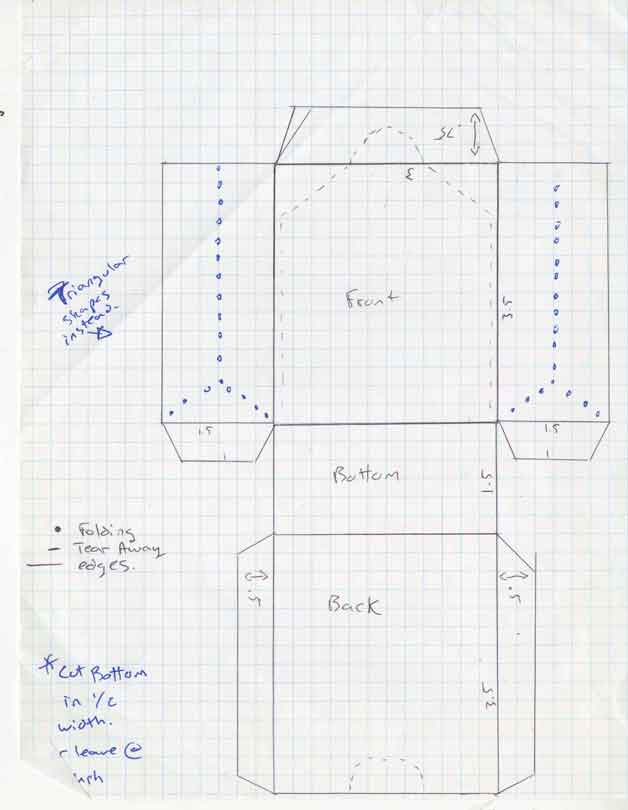 .75
3
Triangular
shapes
instead.
Front
3.5
1.5
1.5
Bottom
1.5
• Folding
- Tear Away
— edges.
.5
.5
Back
3.5
* Cut Bottom
in 1/2
width.
leave @